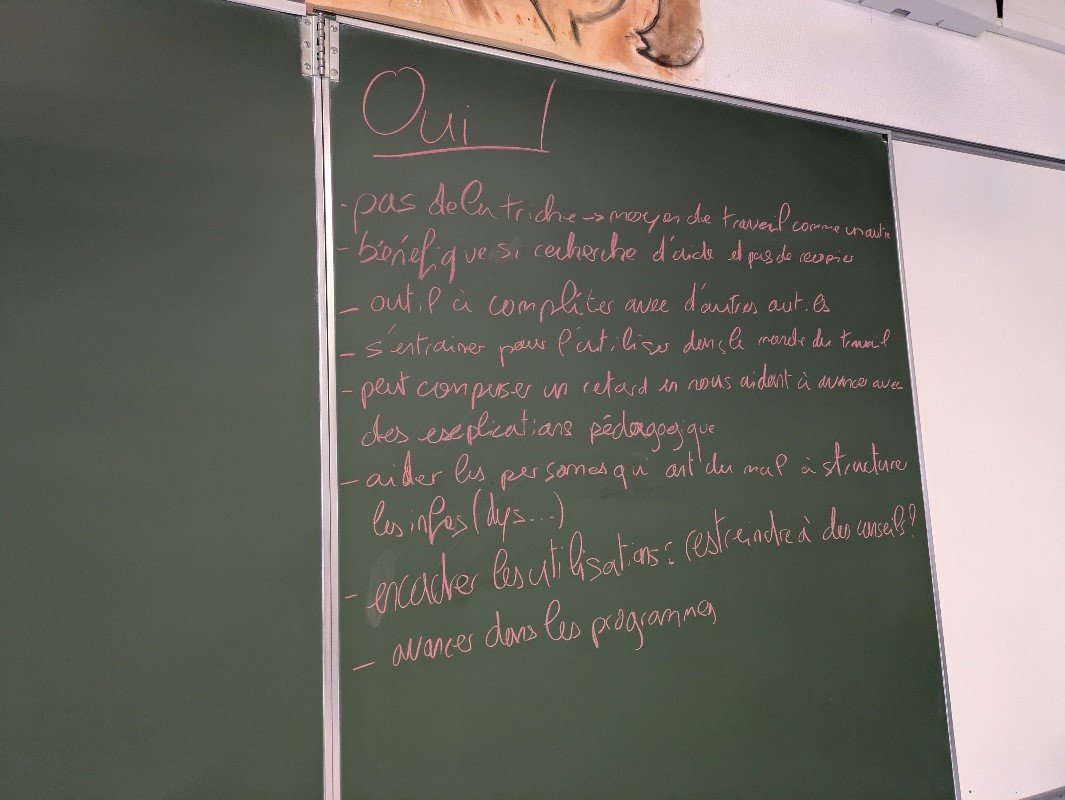 Oui
- pas de la triche → moyen de travail comme un autre
- bénéfique si recherche d'aide et pas de recopier
- outil à compléter avec d'autres outils
- s'entrainer pour l'utiliser dans le monde du travail
- peut compenser un retard en nous aidant à avancer avec
des explications pédagogique
- aider les personnes qui ont du mal à structurer
les infos (dys...)
- encadrer les utilisations : restreindre à des conseils ?
- avancer dans les programmes